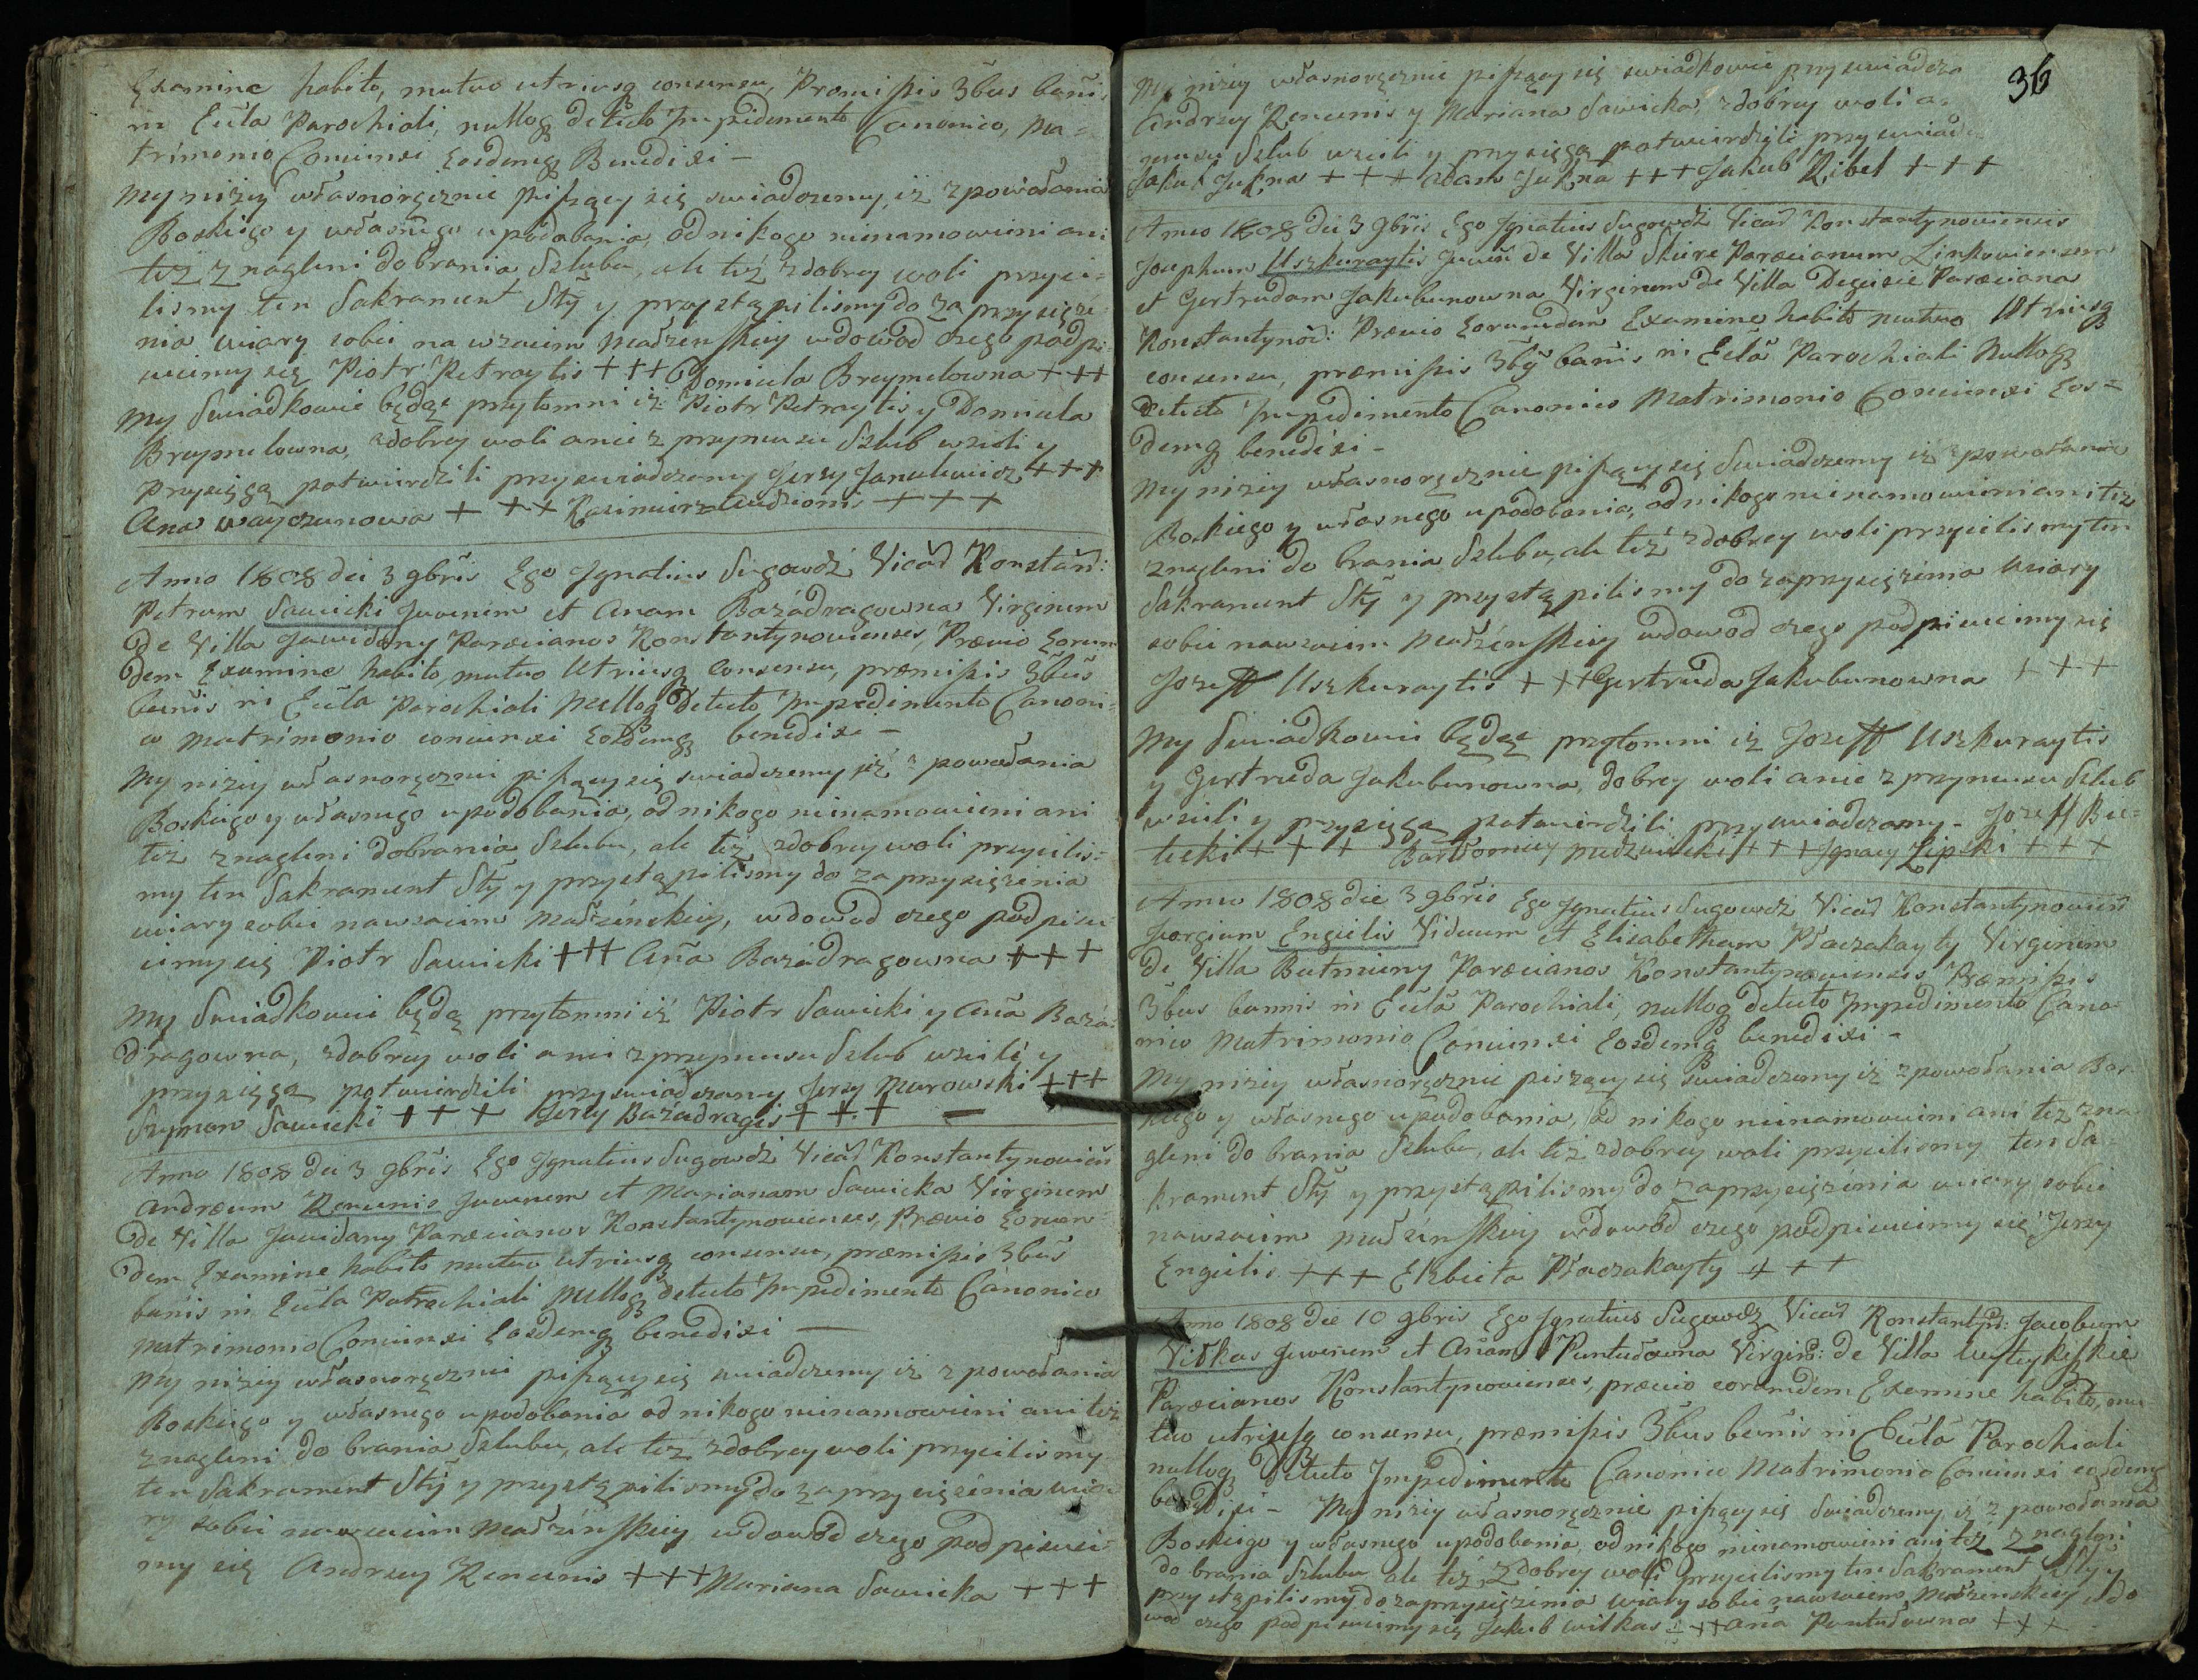 Examine habito, mutuo utriusq consensu, Promißis 3bus bañi,
in Eccła Parochiali, nullog detecto Impedimento Canonico, Ma=
trimonio Coniunxi Eosdemq Benedixi —
My niżey własnoręcznie pißący się swiadczemy, iż z powołania
Boskiego y własnego upodobania, od nikogo nienamowieni ani
też znagleni do brania Szlubu, ale też z dobrey woli przyie=
lismy ten Sakrament Sty y przystąpilismy do zaprzysięże
nia wiary sobie na wzaiem Małżenskiey w dowod czego podpi=
suiemy się Piotr Petraytis +++ Domicela Breymelowna +++
My Swiadkowie będąc przytomni iż Piotr Petraytis y Domicela
Breymelowna, z dobrey woli a nie z przymusu Szlub wzieli y
przysięgą potwierdzili przyswiadczamy Jerzy Janulewicz +++
Ana Wayczunowa + + + Kazimierz Audzionis + + +
Anno 1808 die 3 9bris Ego Ignatius Sugowdź Vicař Konstañ:
Petrum Sawicki Juvenem et Anam Bazadragowna Virginem
de Villa Jawidany Parœcianos Konstantynowienses, Prævio Eorum
dem Examine habito, mutuo Utriusq Consensu, præmißis 3bus
banis in Eccła Parochiali Nullog detecto Impedimento Canoni=
co Matrimonio coniunxi Eosdemq benedixi —
My niżey własnoręcznie pißący się swiadczemy iż z powołania
Boskiego y własnego upodobania, od nikogo nienamowieni ani
też znagleni do brania Szlubu, ale też z dobrey woli przyielis=
my ten Sakrament Sty y przystąpilismy do zaprzysiężenia
wiary sobie nawzaiem Małżenskiey, w dowod czego podpisu
iemy się Piotr Sawicki +++ Aña Bazadragowna +++
My Swiadkowie będąc przytomni iż Piotr Sawicki y Aña Baza=
dragowna, z dobrey woli a nie z przymusu Szlub wzieli y
przysięgą potwierdzili przyswiadczamy Jerzy Murowski +++
Szymon Sawicki +++ Jerzy Bazadragis +++ —
Anno 1808 die 3 9bris Ego Ignatius Sugowdź Vicař Konstantynowieñ
Andræum Remunis Juvenem et Marianam Sawicka Virginem
de Villa Jawidany Parœcianos Konstantynowienses, Prævio Eorun
dem Examine habito mutuo utriusq consensu, præmißis 3bus
banis in Eccła Parochiali Nullog detecto Impedimento Canonico
Matrimonio Coniunxi Eosdemq benedixi —
My niżey własnoręcznie pißący się swiadczemy iż z powołania
Boskiego y własnego upodobania od nikogo nienamowieni ani też
znagleni do brania Szlubu, ale też z dobrey woli przyielismy
ten Sakrament Sty y przystąpilismy do zaprzysiężenia wia
ry sobie nawzaiem Małżenskiey w dowod czego podpisuie
my się Andrzey Remunis +++ Mariana Sawicka +++
36
My niżey własnoręcznie pißący się swiadkowie przyswiadcza
Andrzey Remunis y Mariana Sawicka, z dobrey woli a
Szlub wzieli y przysięgą potwierdzili przyswiad
Jakub Jukna +++ Adam Jukna +++ Jakub Ribel +++
Anno 1808 die 3 9bris Ego Ignatius Sugowdź Vicař Konstantynowiensis
Josephum Uszkuraytis Juveñ de Villa Skire Parœcianum Linkowiensem
et Gertrudam Jakubunowna Virginem de Villa Degisie Parœciana
Konstantynow: Prævio Eorumdem Examine habito mutuo Utriusq
consensu, præmißis 3bg bañis in Eccła Parochiali Nullog
detecto Impedimento Canonico Matrimonio Coniunxi Eos=
demq benedixi —
My niżey własnoręcznie pißący się Swiadczemy iż z powołania
Boskiego y własnego upodobania, od nikogo nienamowieni ani też
znagleni do brania Szlubu, ale też z dobrey woli przyielismy ten
Sakrament Sty y przystąpilismy do zaprzysiężenia wiary
sobie nawzaiem Małżenskiey w dowod czego podpisuiemy się
Jozeff Uszkuraytis +++ Gertruda Jakubunowna +++
My Swiadkowie będąc przytomni iż Jozeff Uszkuraytis
y Gertruda Jakubunowna, dobrey woli a nie z przymusu Szlub
wzieli y przysięgą potwierdzili przyswiadczamy – Jozeff Bie=
lecki + + + Bartłomiey +++ Ignacy Lipski +++
Anno 1808 die 3 9bris Ego Ignatius Sugowdź Vicař Konstantynowieñ
Jeorgium Engielis Viduum et Elisabetham Płaczakayty Virginem
de Villa Butniuny Parœcianos Konstantynowienses Præmißis
3bus bannis in Eccła Parochiali, nullog detecto Impedimento Cano
nico Matrimonio Coniunxi Eosdemq benedixi –
My niżey własnoręcznie piszący się Swiadczemy iż z powołania Bos
kiego y własnego upodobania, od nikogo nienamowieni ani też zna
gleni do brania Szlubu, ale też z dobrey woli przyielismy ten Sa=
krament Sty y przystąpilismy do zaprzysiężenia wiary sobie
nawzaiem Małżenskiey w dowod czego podpisuiemy się Jerzy
Engielis +++ Elżbieta Płaczakayty +++
Anno 1808 die 10 9bris Ego Ignatius Sugowdź Vicař Konstantyn: Jacobum
Vitkas Juvenem et Añam Puntułowna Virgiñ: de Villa
Parœcianos Konstantynowienses, prævio eorumdem Examine habito, mu
tuo utriusq consensu, præmißis 3bus bañis in Eccła Parochiali
nullog detecto Impedimento Canonico Matrimonio Coniunxi eosdemq
benedixi – My niżey własnoręcznie pißący się Swiadczemy iż z powołania
Boskiego y własnego upodobania, od nikogo nienamowieni ani też znagleni
do brania Szlubu ale też z dobrey woli przyielismy ten Sakrament Sty y
przystąpilismy do zaprzysiężenia wiary sobie nawzaiem Małżenskiey w do
wod czego podpisuiemy się Jakub Witkas +++ Aña Puntułowna +++